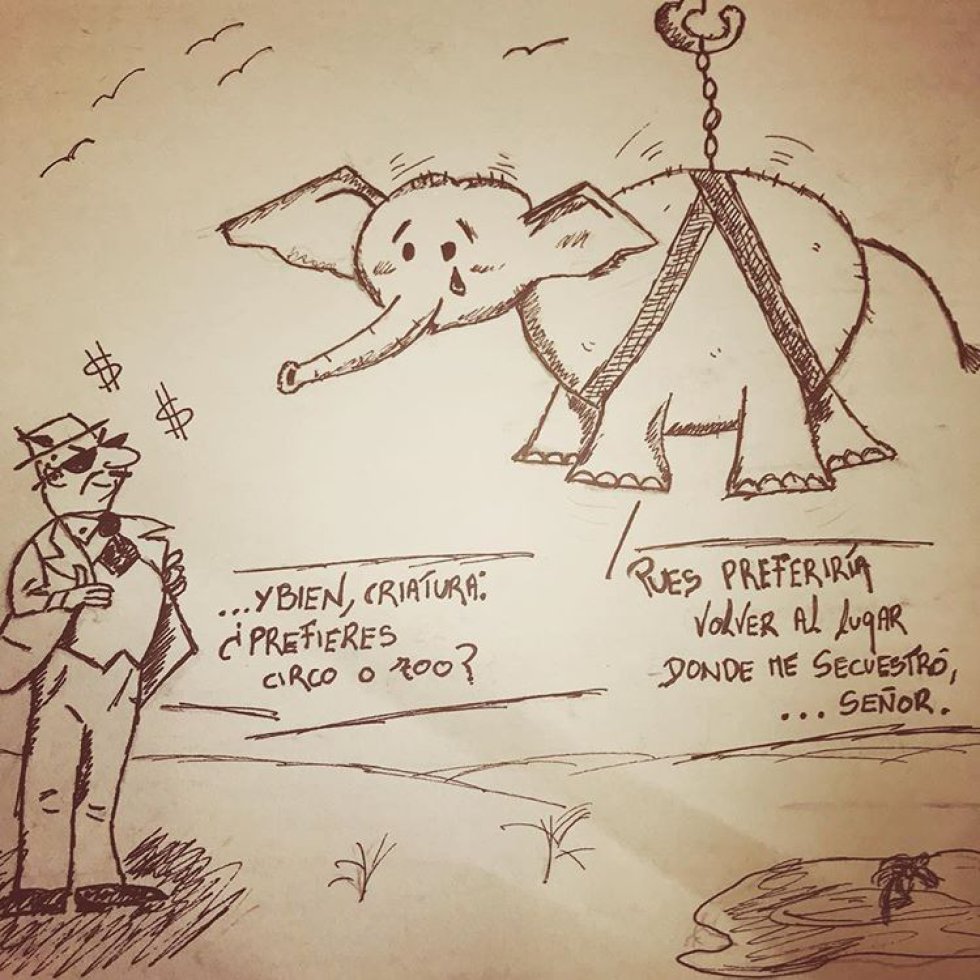 $
$
...Y BIEN, CRIATURA:
¿PREFIERES
CIRCO O ZOO?
PUES PREFERIRÍA
VOLVER AL LUGAR
DONDE ME SECUESTRÓ,
... SEÑOR.